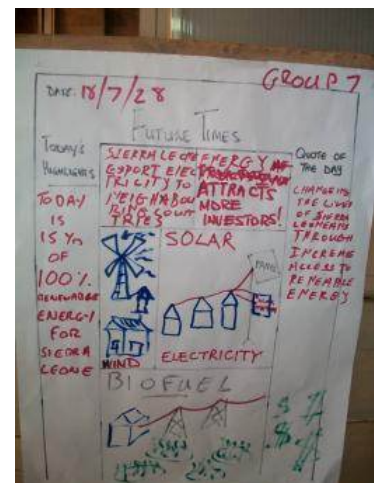 GROUP 7
DATE: 18/7/28
FUTURE TIMES
TODAY'S
HIGHLIGHTS
TODAY
IS
15 Yr
OF
100%
RENEWABLE
ENERGY
FOR
SIERRA
LEONE
SIERRA LEONE
EXPORT ELEC
TRICITY TO
NEIGHABOU
RING COUN
TRIES
ENERGY
ATTRACTS
MORE
INVESTORS!
QUOTE OF
THE DAY
CHANGING
THE LIVES
OF SIERRA
LEONEANS
THROUGH
INCREASE
ACCESS TO
RENEABLE
ENERGY
SOLAR
PANEL
WIND
ELECTRICITY
BIOFUEL